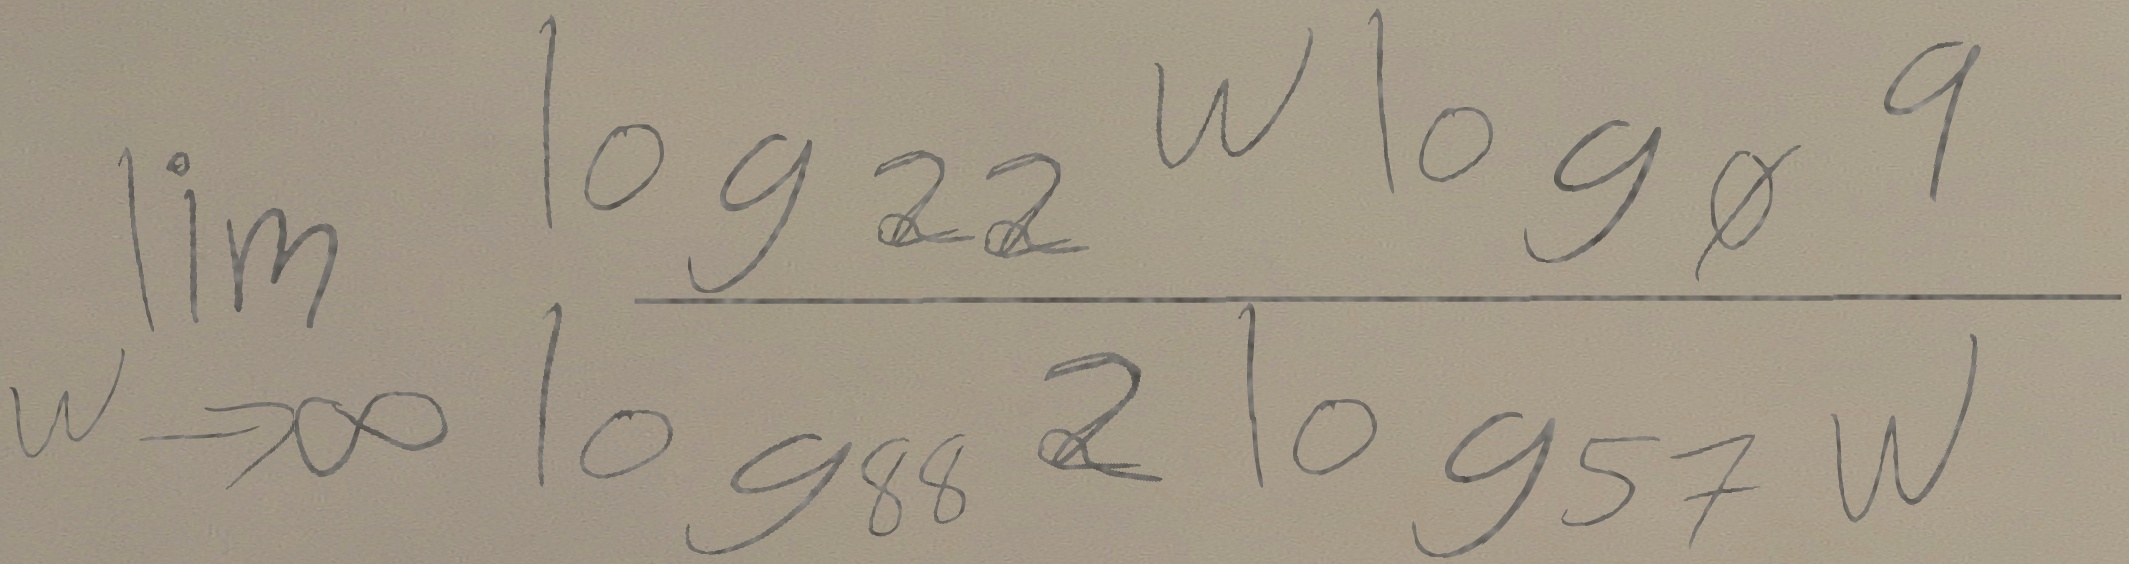 lim w→∞ (log_22 w log_ø 9) / (log_88 2 log_57 w)